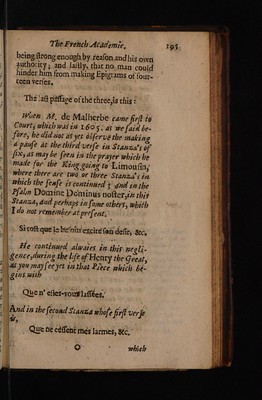 The French Academie. 195
being strong enough by reason and his own
authority; and lastly, that no man could
hinder him from making Epigrams of four-
teen verses.
The last passage of the three, is this:
When M. de Malherbe came first to
Court, which was in 1605. as we said be-
fore, he did not as yet observe the making
a pause at the third verse in Stanza's of
six, as may be seen in the prayer which he
made for the King going to Limousin,
where there are two or three Stanza's in
which the sense is continued; and in the
Psalm Domine Dominus noster, in this
Stanza, and perhaps in some others, which
I do not remember at present.
Si tost que le besoin excite son desir, &c.
He continued alwaies in this negli-
gence, during the life of Henry the Great,
as you may see yet in that Piece which be-
gins with
Que n' estes-vous lassées.
And in the second Stanza whose first verse
is,
Que ne cessent mes larmes, &c.
O which